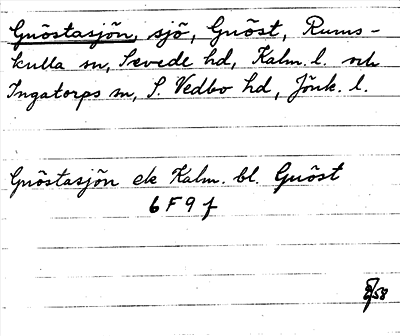 Gnöstasjön, sjö, Gnöst, Rums-
kulla sn, Sevede hd, Kalm. l. och
Ingatorps sn, S. Vedbo hd, Jönk. l.
Gnöstasjön ek Kalm. bl. Gnöst
6 F 9 f
58